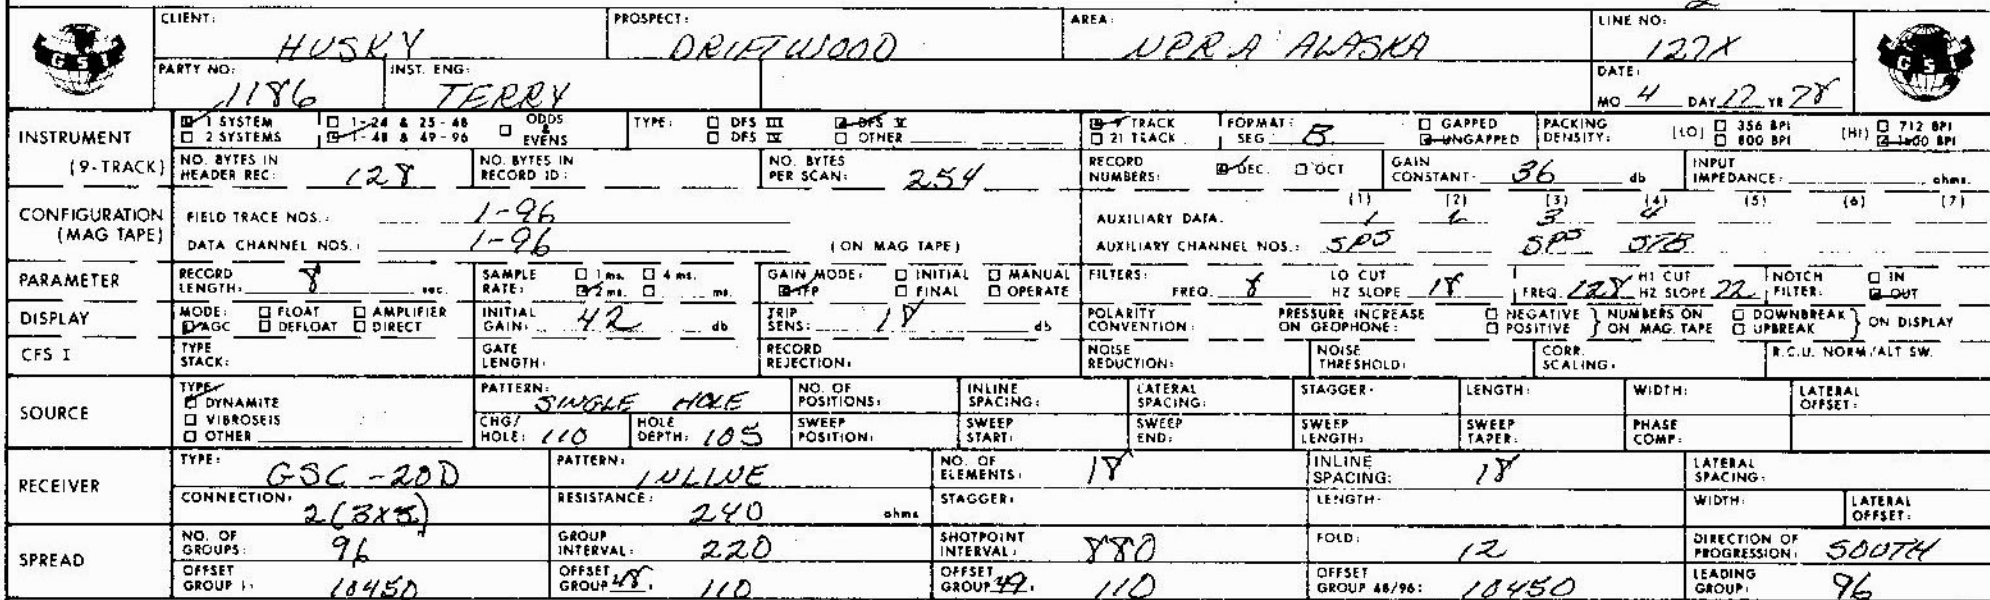 CLIENT: HUSKY PROSPECT: DRIFTWOOD AREA: NPRA ALASKA LINE NO: 127X
GSI GSI
PARTY NO: 1186 INST. ENG: TERRY DATE:
MO 4 DAY 17 YR 78
INSTRUMENT (9-TRACK)
1 SYSTEM 1-24 & 25-48 ODDS & EVENS TYPE: DFS III DFS V 9 TRACK FORMAT: SEG B GAPPED PACKING DENSITY: [LO] 356 BPI (HI) 712 BPI
2 SYSTEMS 1-48 & 49-96 DFS IV OTHER 21 TRACK UNGAPPED 800 BPI 1600 BPI
NO. BYTES IN HEADER REC: 128 NO. BYTES IN RECORD ID: NO. BYTES PER SCAN: 254 RECORD NUMBERS: DEC. OCT GAIN CONSTANT: 36 db INPUT IMPEDANCE: ohms.
CONFIGURATION (MAG TAPE)
(1) (2) (3) (4) (5) (6) (7)
FIELD TRACE NOS.: 1-96 AUXILIARY DATA: 1 2 3 4
DATA CHANNEL NOS.: 1-96 (ON MAG TAPE) AUXILIARY CHANNEL NOS.: SPS SPS STB
PARAMETER RECORD LENGTH: 8 sec. SAMPLE RATE: 1 ms. 4 ms. 2 ms. ms. GAIN MODE: INITIAL MANUAL IFP FINAL OPERATE FILTERS: FREQ. 8 LO CUT HZ SLOPE 18 FREQ. 128 HI CUT HZ SLOPE 72 NOTCH FILTER: IN OUT
DISPLAY MODE: FLOAT AMPLIFIER AGC DEFLOAT DIRECT INITIAL GAIN: 42 db TRIP SENS: 18 db POLARITY CONVENTION: PRESSURE INCREASE ON GEOPHONE: NEGATIVE POSITIVE NUMBERS ON ON MAG. TAPE DOWNBREAK UPBREAK ON DISPLAY
CFS I TYPE STACK: GATE LENGTH: RECORD REJECTION: NOISE REDUCTION: NOISE THRESHOLD: CORR. SCALING: R.C.U. NORM/ALT SW.
SOURCE
TYPE: DYNAMITE VIBROSEIS OTHER
PATTERN: SINGLE HOLE NO. OF POSITIONS: INLINE SPACING: LATERAL SPACING: STAGGER: LENGTH: WIDTH: LATERAL OFFSET:
CHG/HOLE: 110 HOLE DEPTH: 105 SWEEP POSITION: SWEEP START: SWEEP END: SWEEP LENGTH: SWEEP TAPER: PHASE COMP:
RECEIVER
TYPE: GSC-20D PATTERN: INLINE NO. OF ELEMENTS: 18 INLINE SPACING: 18 LATERAL SPACING:
CONNECTION: RESISTANCE: 240 ohms STAGGER: LENGTH: WIDTH: LATERAL OFFSET:
SPREAD
NO. OF GROUPS: 96 GROUP INTERVAL: 220 SHOTPOINT INTERVAL: 880 FOLD: 12 DIRECTION OF PROGRESSION: SOUTH
OFFSET GROUP 1: 10450 OFFSET GROUP 48: 110 OFFSET GROUP 49: 110 OFFSET GROUP 48/96: 10450 LEADING GROUP: 96